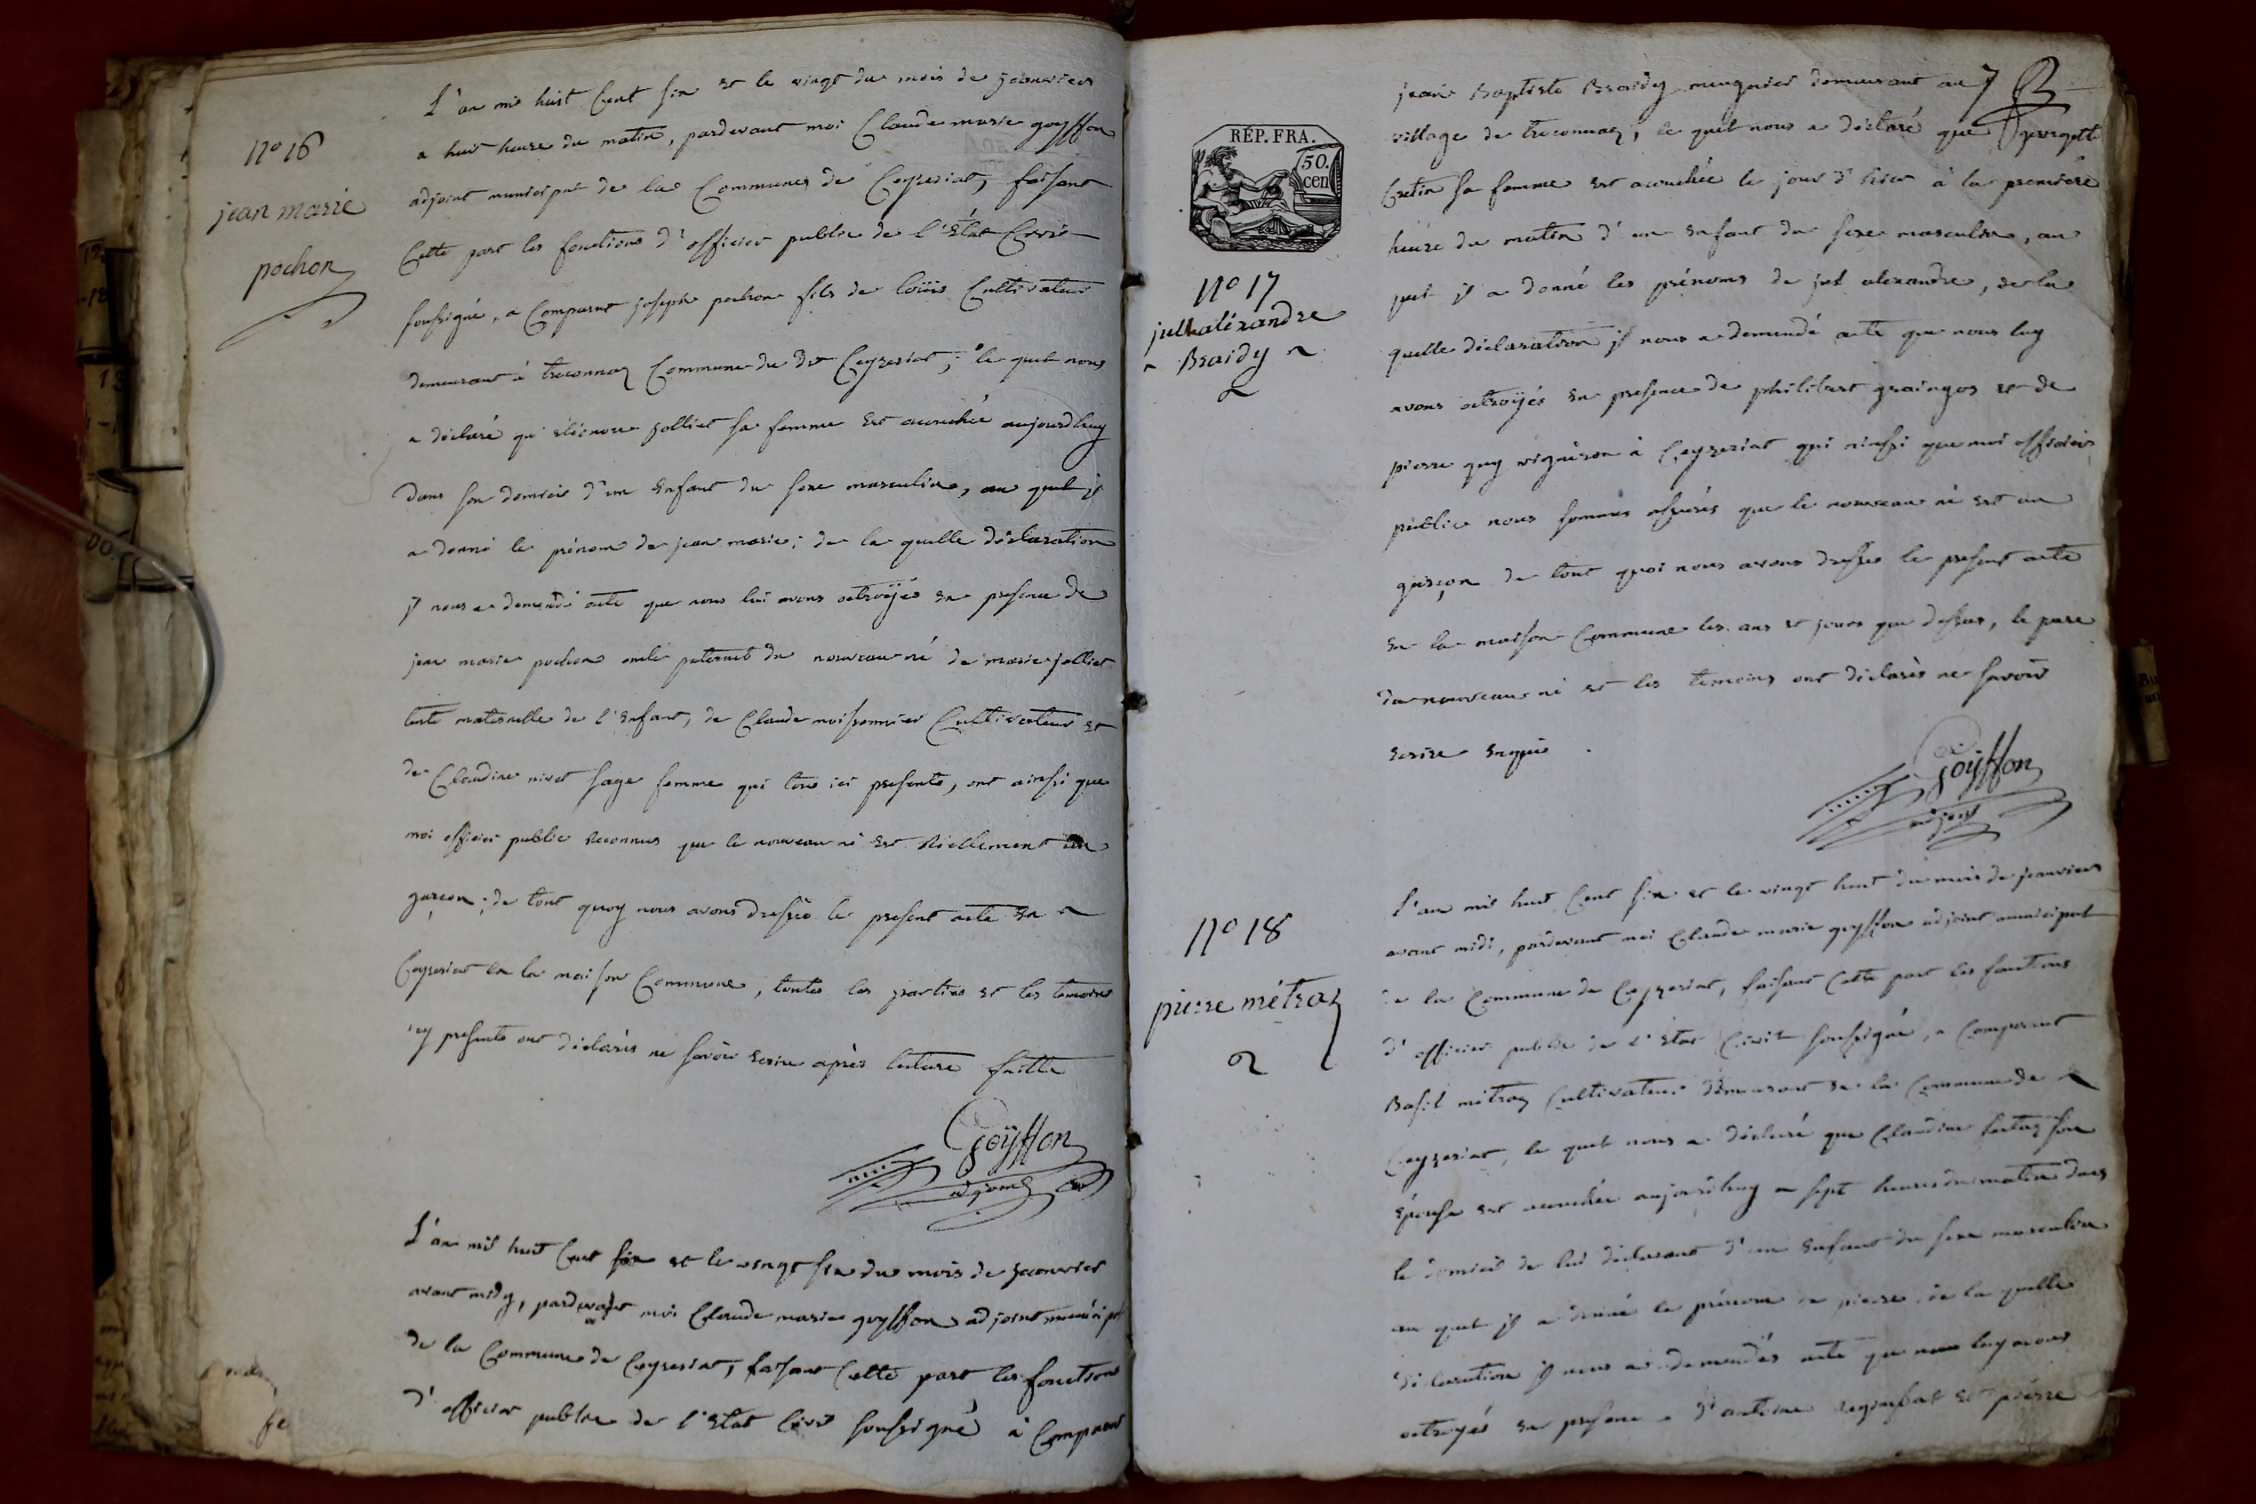 N° 16
jean marie
pochon
L'an mil huit Cent six et le vingt du mois de janvier
a huit heure du matin, pardevant moi Claude marie goyffon
adjoint municipal de la Commune de Ceyzeriat, faisant
Cette part les fonctions d'officier public de l'Etat Civil
soussigné, a Comparut joseph pochon fils de loüis Cultivateur
demeurant à treconnaz Commune du dit Ceyzeriat, le quel nous
a déclaré qu'eléonore jolliet sa femme est acouchée aujourdhuy
dans son domicil d'un enfant du sexe masculin, au quel jl
a donné le prénom de jean marie; de la quelle déclaration
jl nous a demandé acte que nous lui avons octroÿés en presence de
jean marie pochon oncle paternel du nouveau né de marie jolliet
tante maternelle de l'enfant, de Claude moissonnier Cultivateur et
de Claudine nivet sage femme qui tous ici presents, ont ainsi que
moi officier public reconnus que le nouveau né est réellement un
garcon; de tout quoy nous avons dressés le present acte en
Ceyzeriat en la maison Commune, toutes les parties et les temoins
icy presents ont déclarés ne savoir ecrire après lecture faitte
Goÿffon
adjoint
L'an mil huit Cent six et le vingt six du mois de janvier
avant midy, pardevant moi Claude marie goyffon adjoint municipal
de la Commune de Ceyzeriat, faisant Cette part les fonctions
d'officier public de l'Etat Civil soussigné à Comparut
RÉP. FRA.
50.
cen
N° 17
jull alexandre
Braidy
jean Baptiste Braidy meugnier demeurant au
village de treconnaz, le quel nous a déclaré que
Cretin sa femme est acouchée le jour d'hier à la première
heure du matin d'un enfant du sexe masculin, au
quel jl a donné les prénoms de jul alexandre, de la
quelle déclaration jl nous a demandé acte que nous luy
avons octroÿés en presence de philibert graingos et de
pierre guy vigneron à Ceyzeriat qui ainsi que moi officier
public nous sommes assurés que le nouveau né est un
garçon de tout quoi nous avons dressés le present acte
en la maison Commune les ans et jours que dessus, le pere
du nouveau né et les temoins ont déclarés ne savoir
ecrire enquis.
Goÿffon
adjoint
N° 18
pierre métraz
L'an mil huit Cent six et le vingt huit du mois de janvier
avant midi, pardevant moi Claude marie goyffon adjoint municipal
de la Commune de Ceyzeriat, faisant Cette part les fonctions
d'officier public de l'Etat Civil soussigné, a Comparut
Basil métraz Cultivateur demeurant en la Commune de
Ceyzeriat, le quel nous a déclaré que Claudine son
épouse est acouchée aujourdhuy a sept heures du matin dans
le domicil de lui déclarant d'un enfant du sexe masculin
au quel jl a donné le prénom de pierre de la quelle
déclaration jl nous a demandés acte que nous luy avons
octroyés en presence d'antoine et pierre